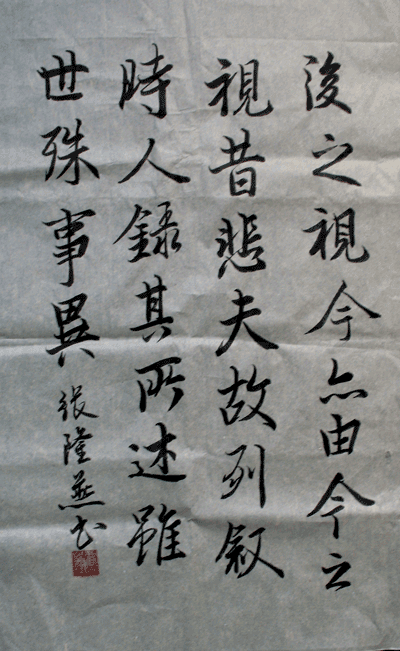 後之視今亦由今之
視昔悲夫故列叙
時人録其所述雖
世殊事異
張隆燕书